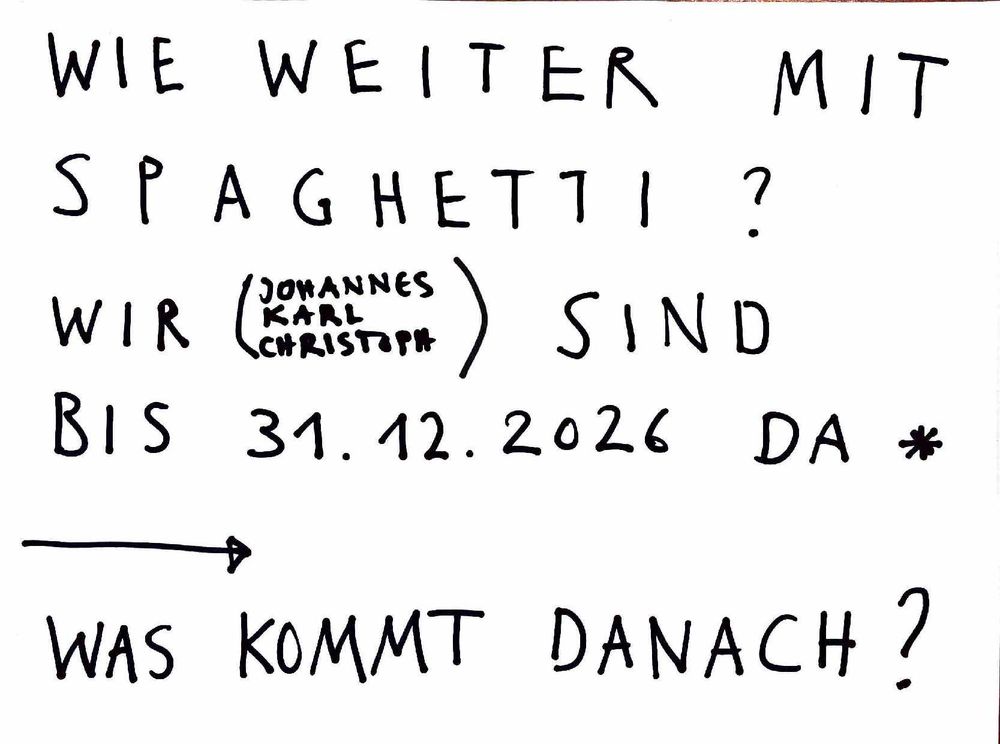 WIE WEITER MIT
SPAGHETTI ?
WIR (JOHANNES
KARL
CHRISTOPH) SIND
BIS 31.12.2026 DA *
→
WAS KOMMT DANACH?